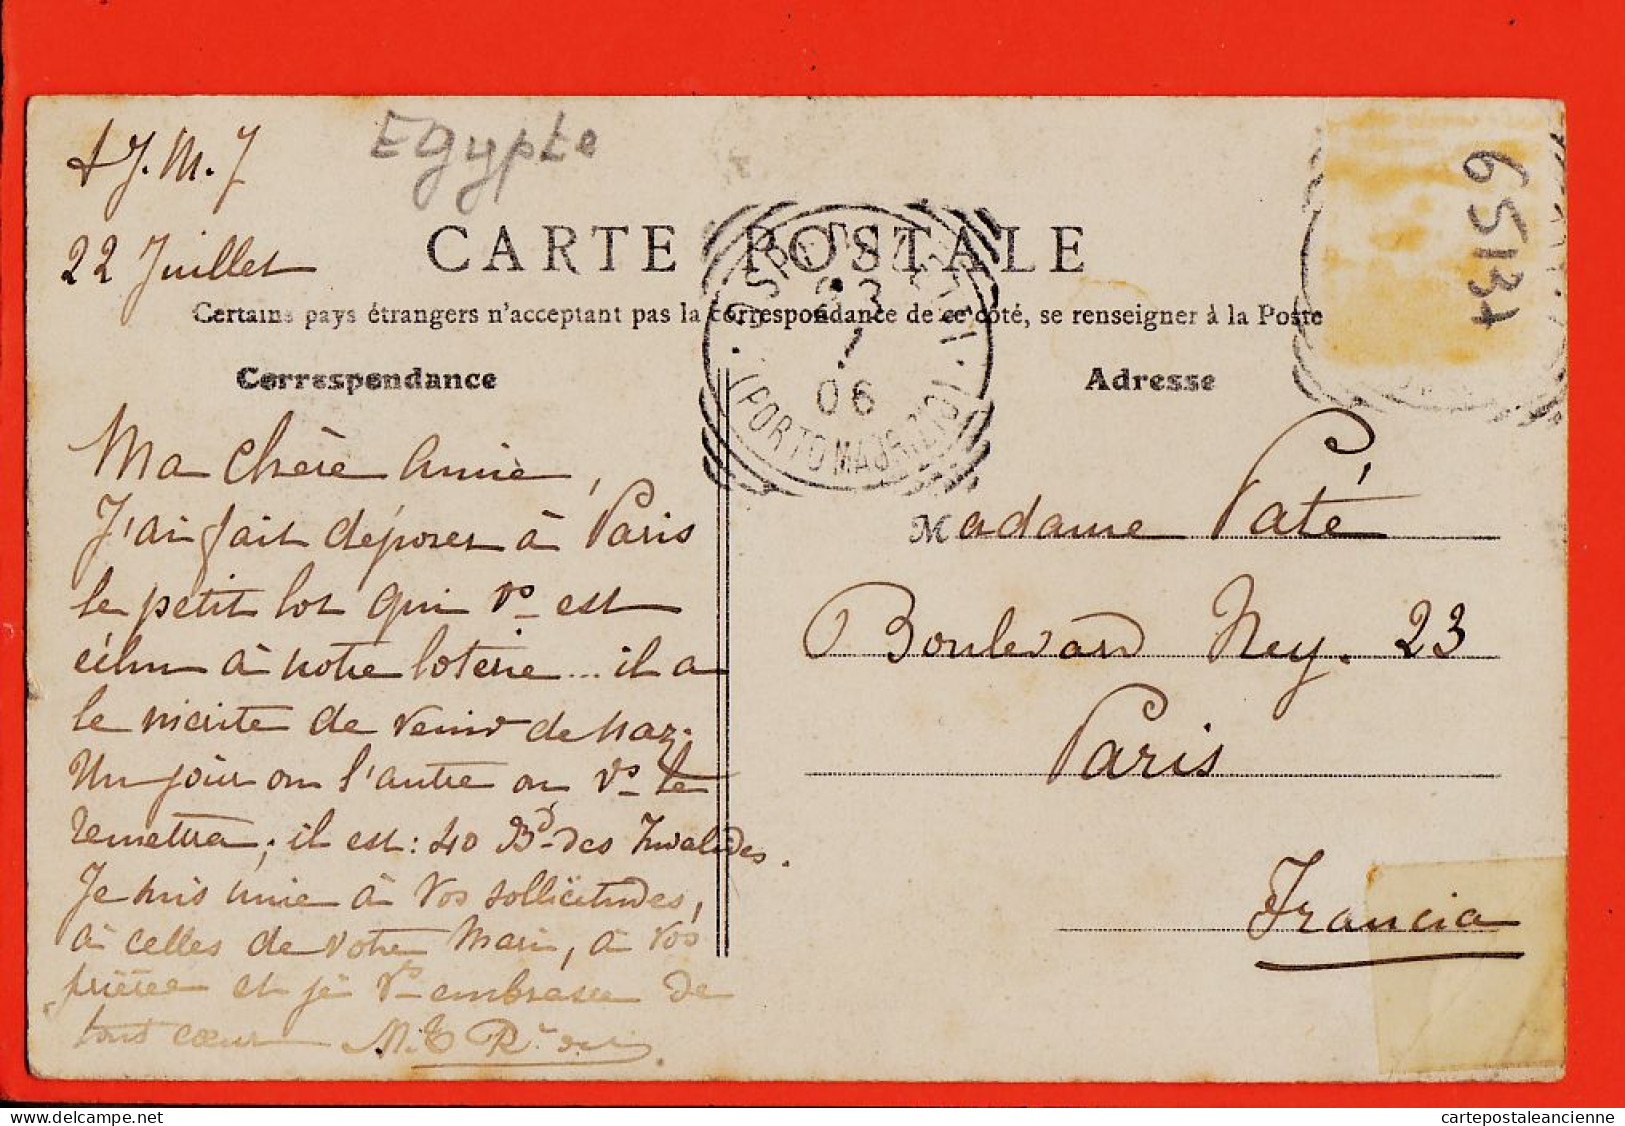 + J. M. J
Egypte
65134
22 Juillet
CARTE POSTALE
Certains pays étrangers n'acceptant pas la correspondance de ce côté, se renseigner à la Poste
23
7
06
(PORTO MAURIZIO)
Correspondance
Adresse
Ma Chère Amie,
J'ai fait déposer à Paris
le petit lot qui vs est
échu à notre loterie... il a
le mérite de venir de Naz.
Un jour ou l'autre on vs le
remettra; il est: 40 Bd des Invalides.
Je suis unie à vos sollicitudes,
à celles de votre Mari, à vos
prières et je vs embrasse de
tout cœur M. T. R.
Madame Paté
Boulevard Ney. 23
Paris
Francia
cartepostaleancienne